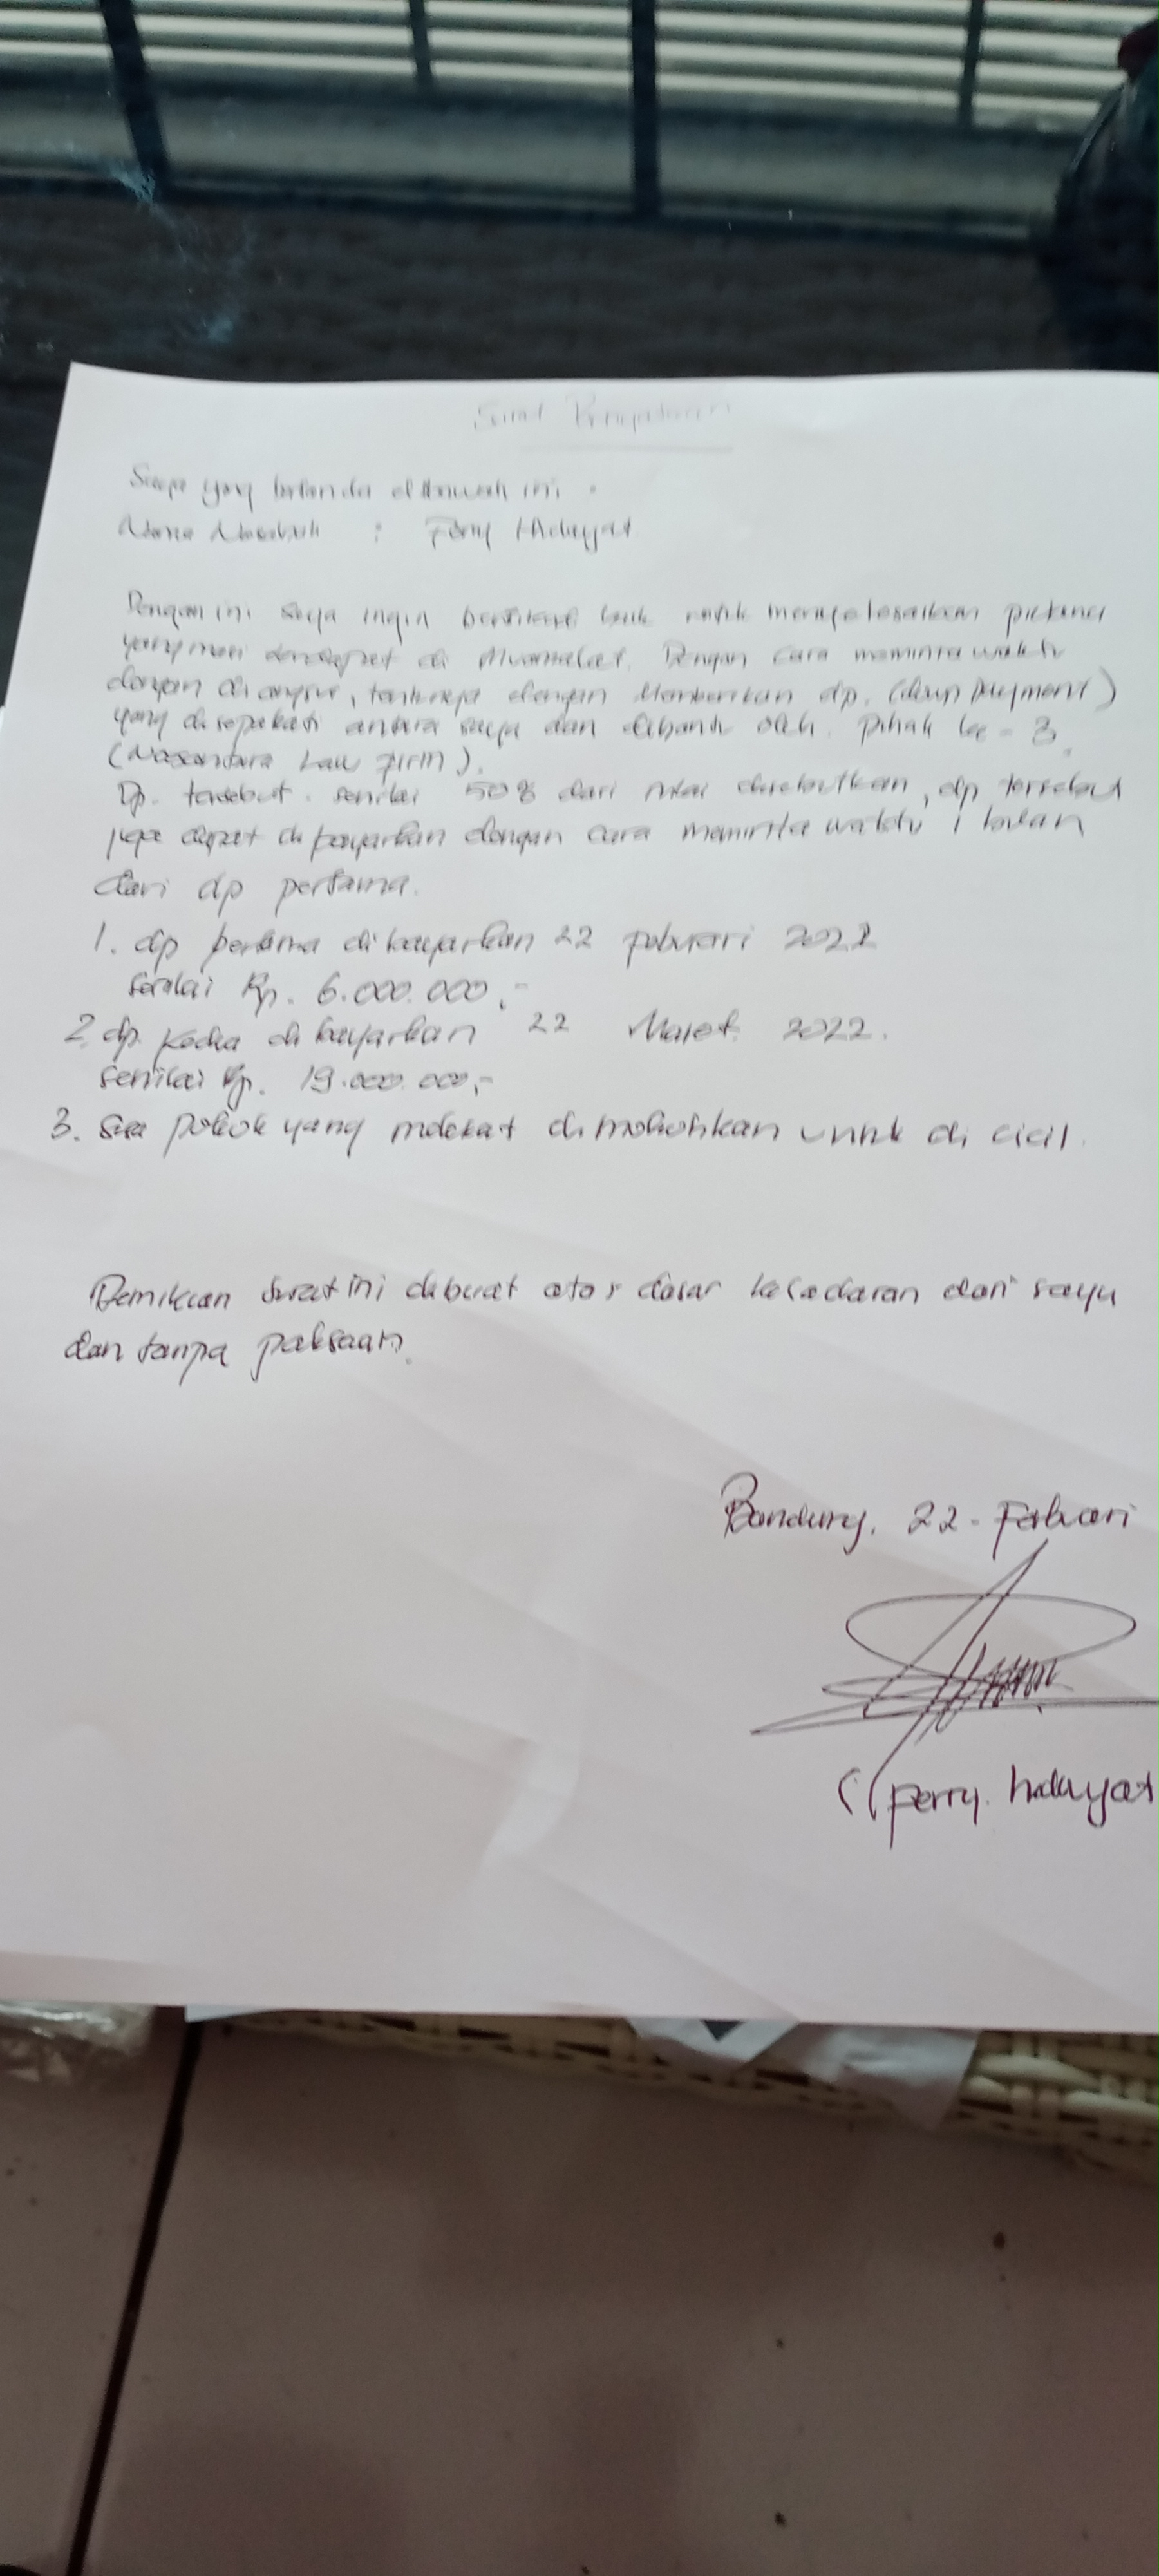 Surat Pernyataan
Saya yang bertanda dibawah ini :
Nama Nasabah : Ferry Hidayat
Dengan ini saya ingin beritikad baik untuk menyelesaikan piutang
yang masi terdapat di Muamalat. Dengan cara meminta waktu
dengan di angsur, tentunya dengan Memberikan dp. (down payment)
yang disepakati antara saya dan dibantu oleh. Pihak ke - 3
(Nasantara Law Firm).
Dp. tersebut. senilai 50% dari nilai disebutkan, dp tersebut
juga dapat di bayarkan dengan cara meminta waktu 1 bulan
dari dp pertama.
1. dp pertama di bayarkan 22 Febuari 2022
senilai Rp. 6.000.000,-
2. dp kedua di bayarkan 22 Maret. 2022.
senilai Rp. 19.000.000,-
3. pokok yang di mohonkan untuk di cicil.
Demikian Surat ini dibuat atas dasar kesadaran dari saya
dan tanpa paksaan.
Bandung, 22 - Febuari
(Ferry. hidayat